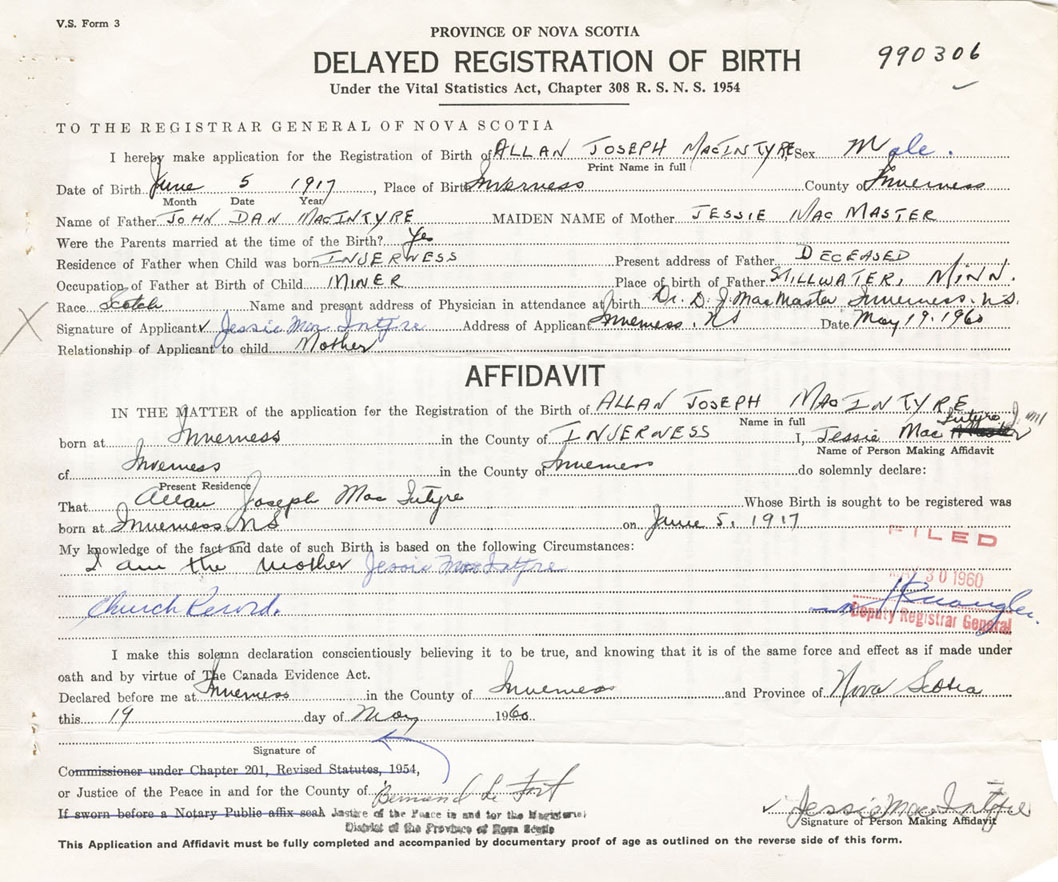 V.S. Form 3
PROVINCE OF NOVA SCOTIA
DELAYED REGISTRATION OF BIRTH
990306
Under the Vital Statistics Act, Chapter 308 R. S. N. S. 1954
TO THE REGISTRAR GENERAL OF NOVA SCOTIA
I hereby make application for the Registration of Birth of ALLAN JOSEPH MACINTYRE Sex Male.
Print Name in full
Date of Birth June 5 1917, Place of Birth Inverness County of Inverness
Month Date Year
Name of Father JOHN DAN MACINTYRE MAIDEN NAME of Mother JESSIE MAC MASTER
Were the Parents married at the time of the Birth? Yes
Residence of Father when Child was born INVERNESS Present address of Father DECEASED
Occupation of Father at Birth of Child MINER Place of birth of Father STILLWATER, MINN.
Race Scotch Name and present address of Physician in attendance at birth Dr. D. J. MacMaster Inverness. N.S.
X Signature of Applicant ✓ Jessie Mac Intyre Address of Applicant Inverness, NS Date May 19, 1960
Relationship of Applicant to child Mother
AFFIDAVIT
IN THE MATTER of the application for the Registration of the Birth of ALLAN JOSEPH MACINTYRE
Name in full
born at Inverness in the County of INVERNESS I, Jessie Mac Intyre
Name of Person Making Affidavit
of Inverness in the County of Inverness do solemnly declare:
Present Residence
That Allan Joseph Mac Intyre Whose Birth is sought to be registered was
born at Inverness NS on June 5, 1917
FILED
My knowledge of the fact and date of such Birth is based on the following Circumstances:
I am the Mother Jessie MacIntyre
30 1960
Church Record.
Deputy Registrar General
I make this solemn declaration conscientiously believing it to be true, and knowing that it is of the same force and effect as if made under
oath and by virtue of The Canada Evidence Act.
Declared before me at Inverness in the County of Inverness and Province of Nova Scotia
this 19 day of May 1960
Signature of
Commissioner under Chapter 201, Revised Statutes, 1954,
or Justice of the Peace in and for the County of
If sworn before a Notary Public affix seal Justice of the Peace in and for the Magisterial
District of the Province of Nova Scotia
✓ Jessie MacIntyre
Signature of Person Making Affidavit
This Application and Affidavit must be fully completed and accompanied by documentary proof of age as outlined on the reverse side of this form.